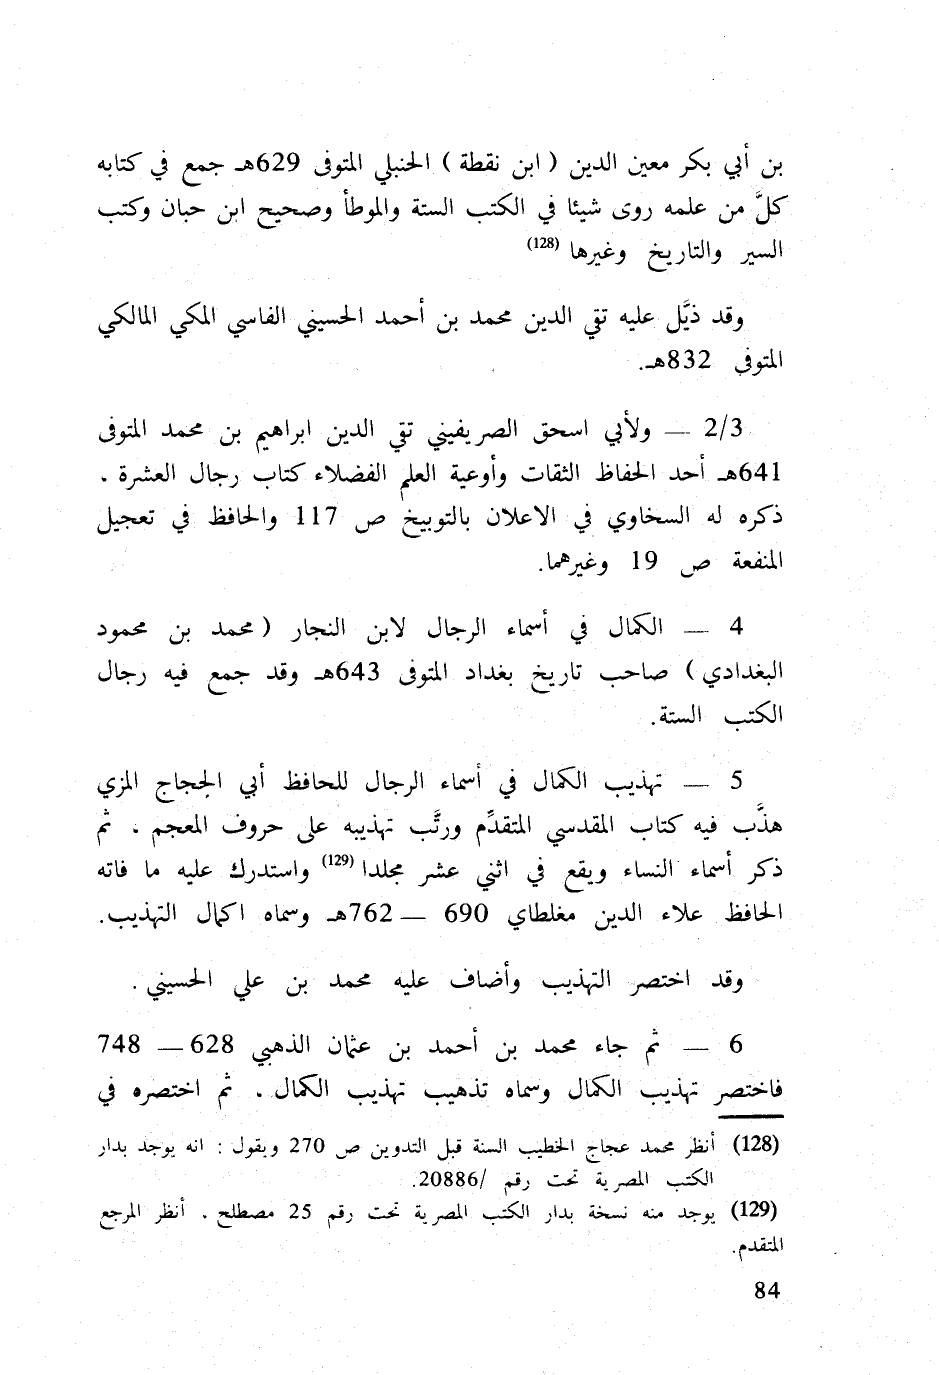 بن أبي بكر معين الدين ( ابن نقطة ) الحنبلي المتوفى 629هـ جمع في كتابه
كلَّ من علمه روى شيئا في الكتب الستة والموطأ وصحيح ابن حبان وكتب
السير والتاريخ وغيرها (128)
وقد ذيَّل عليه تقي الدين محمد بن أحمد الحسيني الفاسي المكي المالكي
المتوفى 832هـ.
2/3 — ولأبي اسحق الصريفيني تقي الدين ابراهيم بن محمد المتوفى
641هـ أحد الحفاظ الثقات وأوعية العلم الفضلاء كتاب رجال العشرة .
ذكره له السخاوي في الاعلان بالتوبيخ ص 117 والحافظ في تعجيل
المنفعة ص 19 وغيرهما.
4 — الكمال في أسماء الرجال لابن النجار ( محمد بن محمود
البغدادي ) صاحب تاريخ بغداد المتوفى 643هـ وقد جمع فيه رجال
الكتب الستة.
5 — تهذيب الكمال في أسماء الرجال للحافظ أبي الحجاج المزي
هذَّب فيه كتاب المقدسي المتقدِّم ورتَّب تهذيبه على حروف المعجم . ثم
ذكر أسماء النساء ويقع في اثني عشر مجلدا (129) واستدرك عليه ما فاته
الحافظ علاء الدين مغلطاي 690 — 762هـ وسماه اكمال التهذيب.
وقد اختصر التهذيب وأضاف عليه محمد بن علي الحسيني .
6 — ثم جاء محمد بن أحمد بن عثمان الذهبي 628 — 748
فاختصر تهذيب الكمال وسماه تذهيب تهذيب الكمال . ثم اختصره في
(128) أنظر محمد عجاج الخطيب السنة قبل التدوين ص 270 ويقول : انه يوجد بدار
الكتب المصرية تحت رقم /20886.
(129) يوجد منه نسخة بدار الكتب المصرية تحت رقم 25 مصطلح . أنظر المرجع
المتقدم.
84